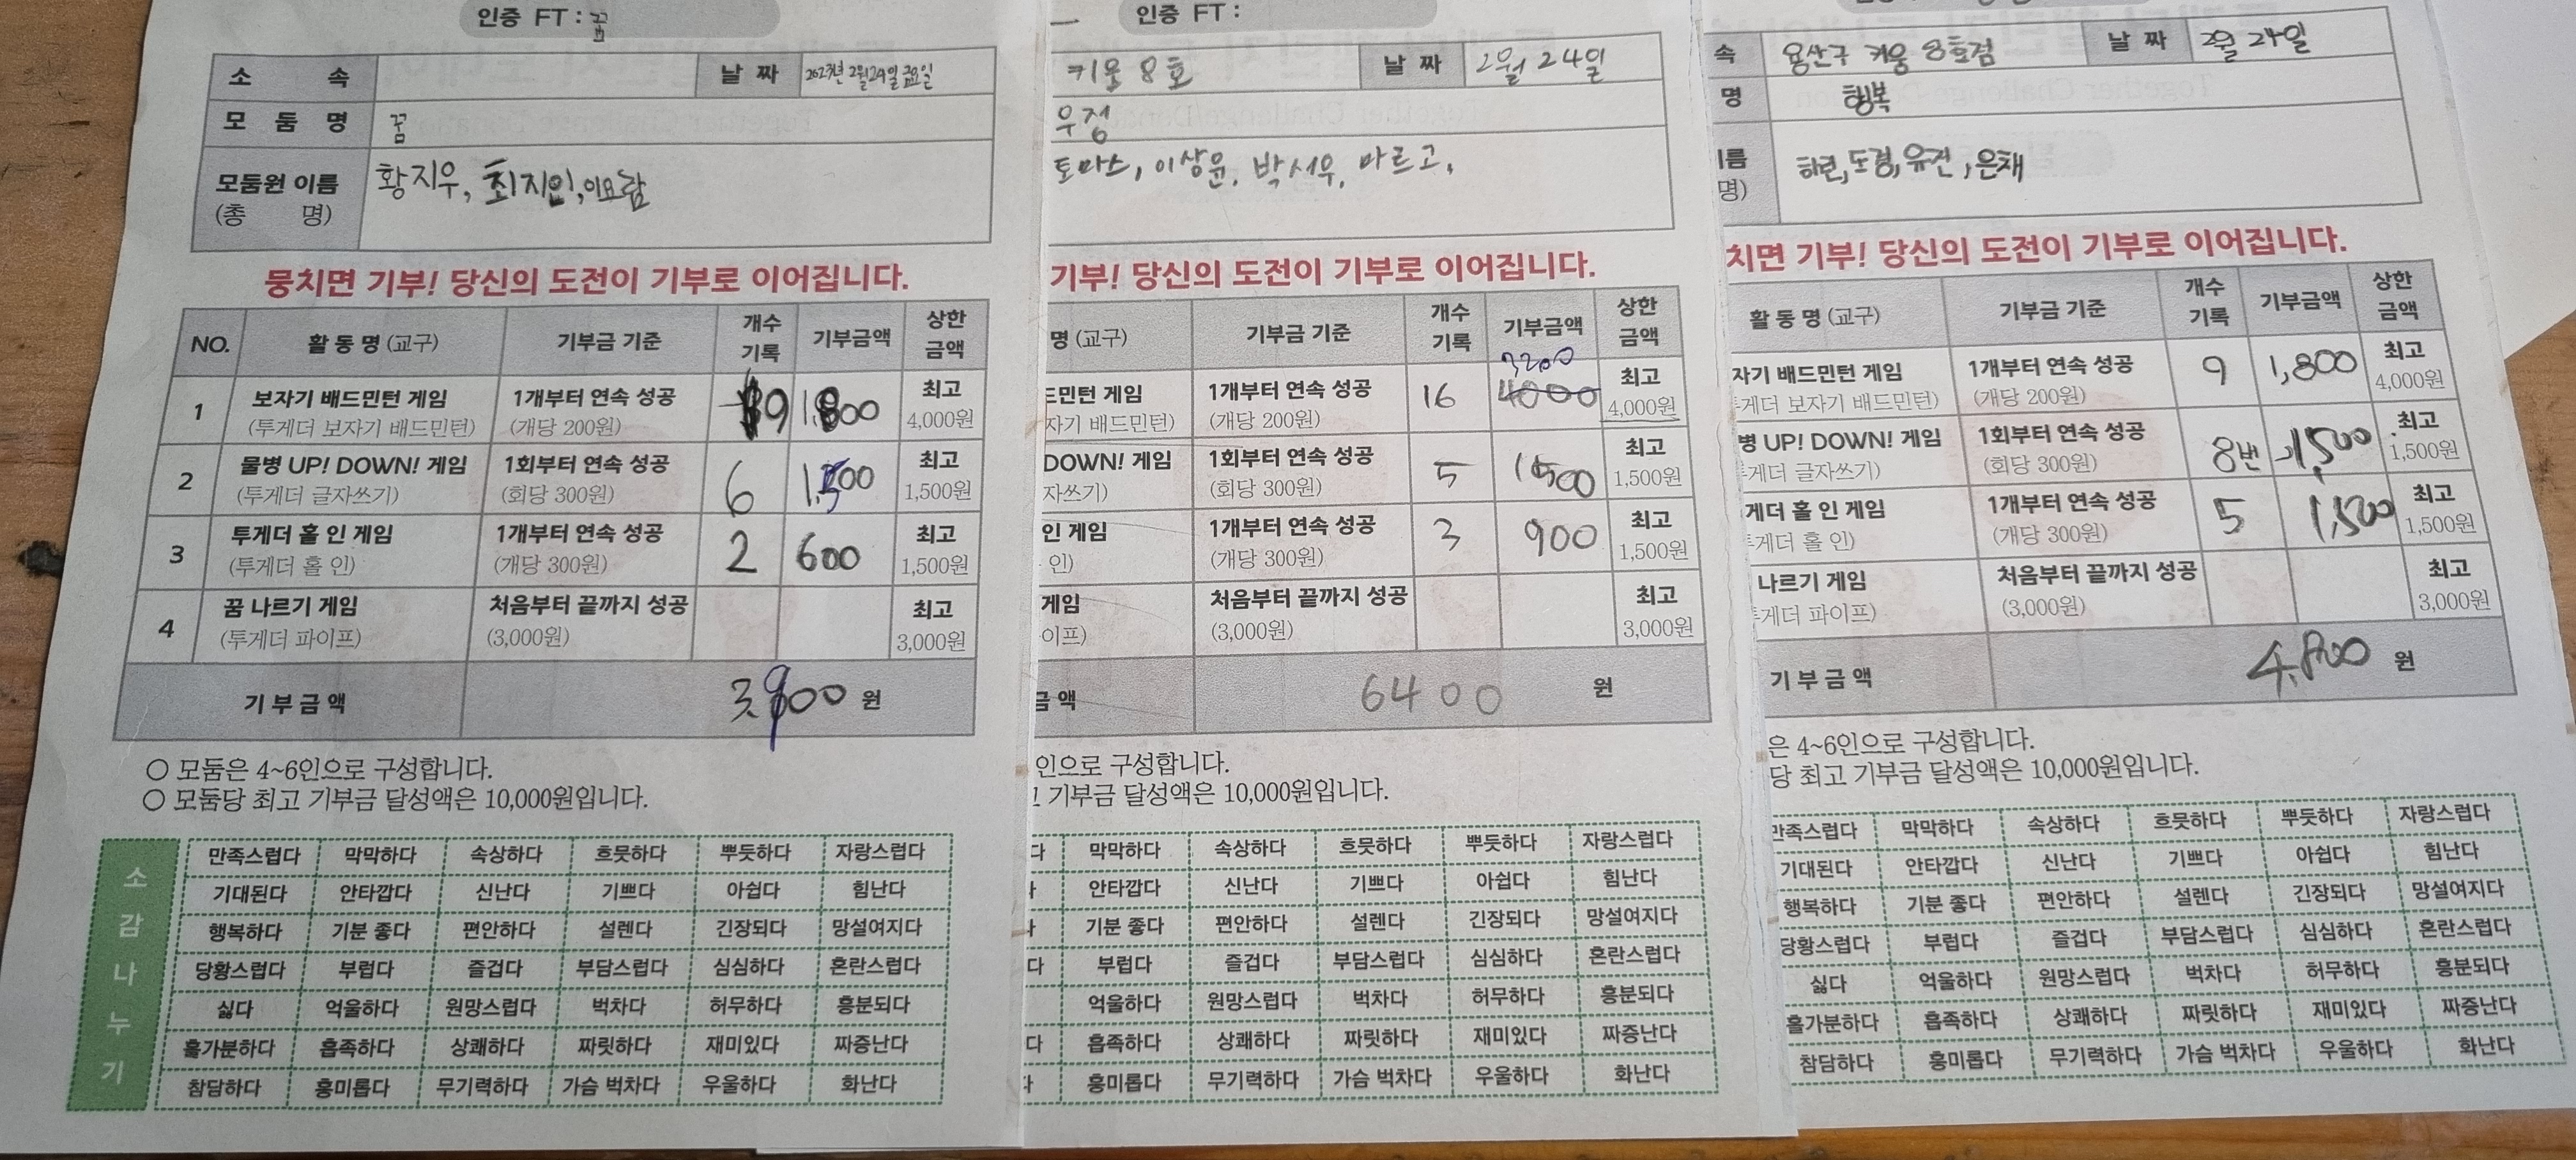 인증 FT : 꿈
소 속
날 짜 2023년 2월24일 금요일
모 둠 명 꿈
모둠원 이름 황지우, 최지인, 이요람
(총 명)
뭉치면 기부! 당신의 도전이 기부로 이어집니다.
NO. 활 동 명 (교구) 기부금 기준 개수 기록 기부금액 상한 금액
1 보자기 배드민턴 게임 1개부터 연속 성공 9 1,800 최고
(투게더 보자기 배드민턴) (개당 200원) 4,000원
2 물병 UP! DOWN! 게임 1회부터 연속 성공 6 1,500 최고
(투게더 글자쓰기) (회당 300원) 1,500원
3 투게더 홀 인 게임 1개부터 연속 성공 2 600 최고
(투게더 홀 인) (개당 300원) 1,500원
4 꿈 나르기 게임 처음부터 끝까지 성공 최고
(투게더 파이프) (3,000원) 3,000원
기 부 금 액 3,900 원
○ 모둠은 4~6인으로 구성합니다.
○ 모둠당 최고 기부금 달성액은 10,000원입니다.
소감나누기
만족스럽다 막막하다 속상하다 흐뭇하다 뿌듯하다 자랑스럽다
기대된다 안타깝다 신난다 기쁘다 아쉽다 힘난다
행복하다 기분 좋다 편안하다 설렌다 긴장되다 망설여지다
당황스럽다 부럽다 즐겁다 부담스럽다 심심하다 혼란스럽다
싫다 억울하다 원망스럽다 벅차다 허무하다 흥분되다
홀가분하다 흡족하다 상쾌하다 짜릿하다 재미있다 짜증난다
참담하다 흥미롭다 무기력하다 가슴 벅차다 우울하다 화난다
인증 FT :
키움 8호 날 짜 2월 24일
우정
토마스, 이상윤, 박서우, 마르고,
기부! 당신의 도전이 기부로 이어집니다.
명 (교구) 기부금 기준 개수 기록 기부금액 상한 금액
3200
드민턴 게임 1개부터 연속 성공 16 4000 최고
자기 배드민턴) (개당 200원) 4,000원
DOWN! 게임 1회부터 연속 성공 5 1500 최고
자쓰기) (회당 300원) 1,500원
인 게임 1개부터 연속 성공 3 900 최고
인) (개당 300원) 1,500원
게임 처음부터 끝까지 성공 최고
이프) (3,000원) 3,000원
금 액 6400 원
인으로 구성합니다.
기부금 달성액은 10,000원입니다.
다 막막하다 속상하다 흐뭇하다 뿌듯하다 자랑스럽다
안타깝다 신난다 기쁘다 아쉽다 힘난다
기분 좋다 편안하다 설렌다 긴장되다 망설여지다
다 부럽다 즐겁다 부담스럽다 심심하다 혼란스럽다
억울하다 원망스럽다 벅차다 허무하다 흥분되다
다 흡족하다 상쾌하다 짜릿하다 재미있다 짜증난다
흥미롭다 무기력하다 가슴 벅차다 우울하다 화난다
속 용산구 키움 8호점 날 짜 2월 24일
명 행복
이름 하린, 도경, 유건, 은채
명)
치면 기부! 당신의 도전이 기부로 이어집니다.
활 동 명 (교구) 기부금 기준 개수 기록 기부금액 상한 금액
자기 배드민턴 게임 1개부터 연속 성공 9 1,800 최고
투게더 보자기 배드민턴) (개당 200원) 4,000원
병 UP! DOWN! 게임 1회부터 연속 성공 8번 1,500 최고
투게더 글자쓰기) (회당 300원) 1,500원
게더 홀 인 게임 1개부터 연속 성공 5 1,500 최고
투게더 홀 인) (개당 300원) 1,500원
나르기 게임 처음부터 끝까지 성공 최고
투게더 파이프) (3,000원) 3,000원
기 부 금 액 4,800 원
은 4~6인으로 구성합니다.
당 최고 기부금 달성액은 10,000원입니다.
만족스럽다 막막하다 속상하다 흐뭇하다 뿌듯하다 자랑스럽다
기대된다 안타깝다 신난다 기쁘다 아쉽다 힘난다
행복하다 기분 좋다 편안하다 설렌다 긴장되다 망설여지다
당황스럽다 부럽다 즐겁다 부담스럽다 심심하다 혼란스럽다
싫다 억울하다 원망스럽다 벅차다 허무하다 흥분되다
홀가분하다 흡족하다 상쾌하다 짜릿하다 재미있다 짜증난다
참담하다 흥미롭다 무기력하다 가슴 벅차다 우울하다 화난다